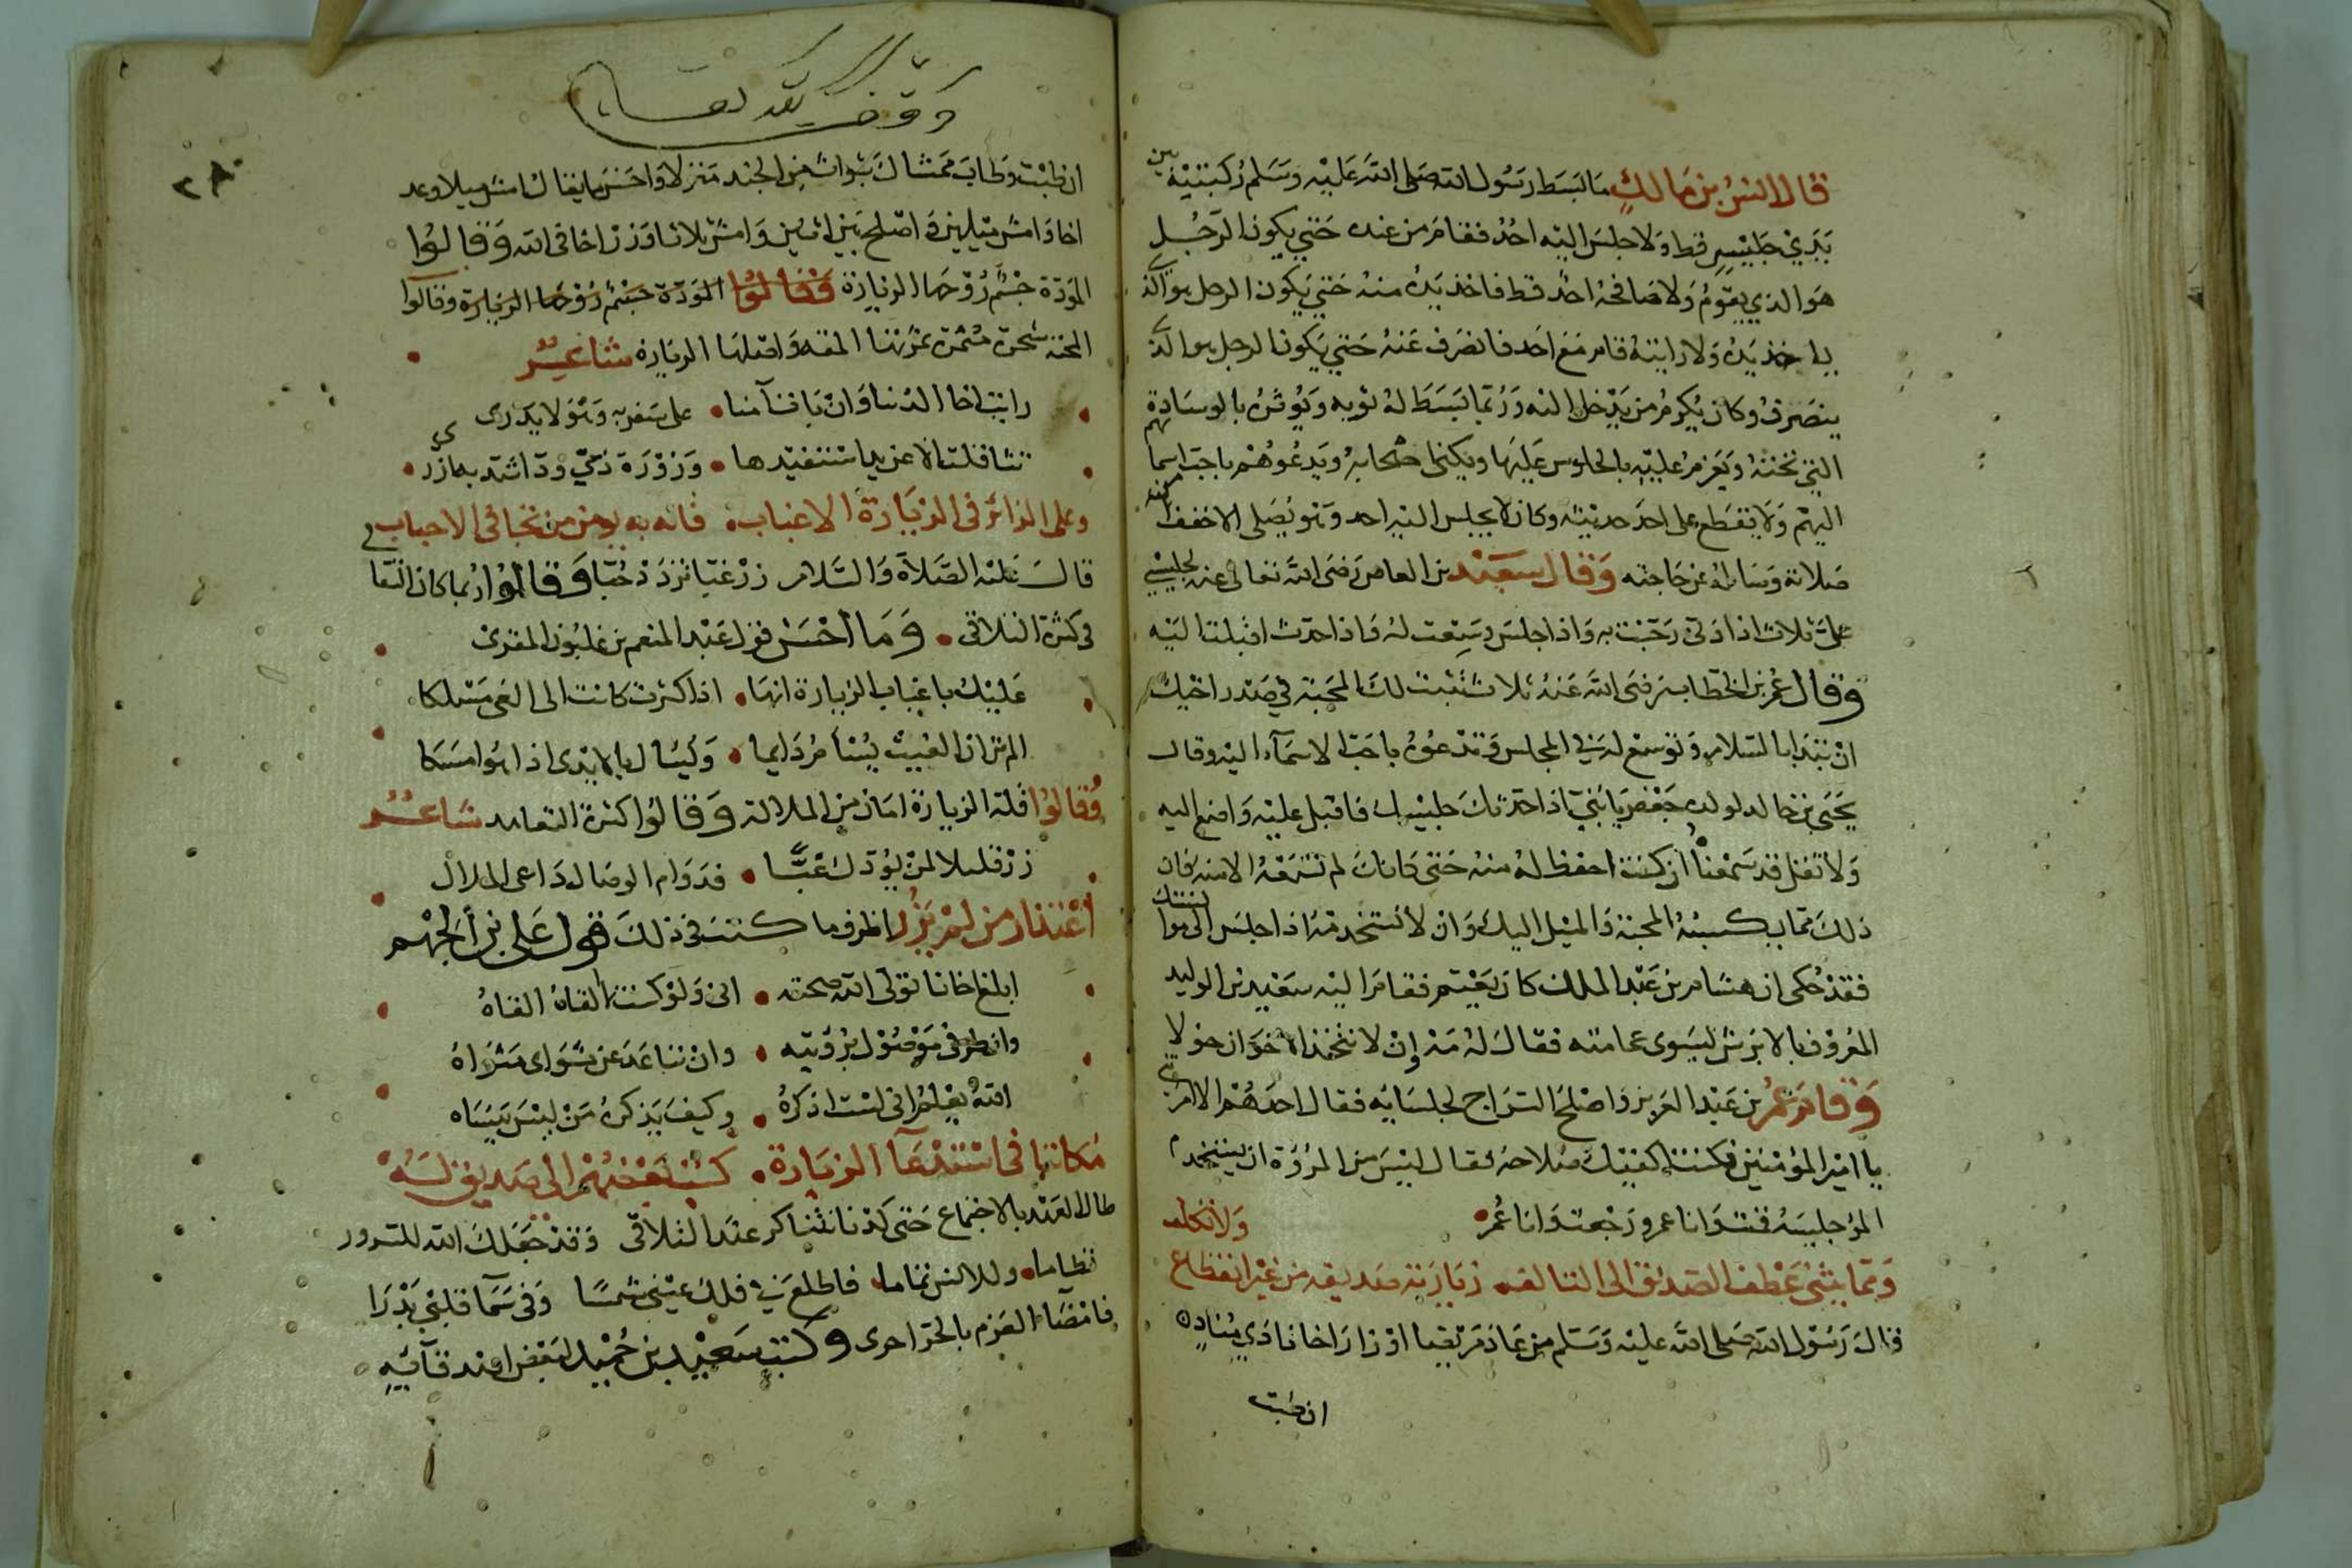 قال انس بن مالك ما بسط رسول الله صلى الله عليه وسلم ركبتيه بين
يدي جليس قط ولا جلس اليه احد فقام من عنده حتى يكون الرجل
هو الذي يقوم ولا صافحه احد قط فاخذ يده منه حتى يكون الرجل هو الذي
ياخذ يده ولا رايته قام مع احد فانصرف عنه حتى يكون الرجل هو الذي
ينصرف وكان يكرم من يدخل اليه وربما بسط له ثوبه ويوثره بالوسادة
التي تحته ويعزم عليه بالجلوس عليها ويكنى اصحابه ويدعوهم باحب اسمائهم
اليهم ولا يقطع على احد حديثه وكان لا يجلس اليه احد وهو يصلي الا خفف من
صلاته وساله عن حاجته وقال سعيد بن العاص رضى الله تعالى عنه لجليسي
على ثلاث اذا دنى رحبت به واذا جلس وسعت له واذا حدث اقبلت اليه
وقال عمر بن الخطاب رضى الله عنه ثلاث تثبت لك المحبة في صدر اخيك
ان تبدا بالسلام وتوسع له في المجلس وتدعوه باحب الاسماء اليه وقال
يحيى بن خالد لولده جعفر يا بني اذا حدثك جليسك فاقبل عليه واصغ اليه
ولا تقل قد سمعته وان كنت احفظ له منه حتى كانك لم تسمعه الا منه فان
ذلك مما يكسبه المحبة والميل اليك وان لا تستخدمه اذا جلس الى موانستك
فقد حكى ان هشام بن عبد الملك كان يعتم فقام اليه سعيد بن الوليد
المعروف بالابرش ليسوى عمامته فقال له مه إن لا نتخذ الاخوان خولا
وقام عمر بن عبد العزيز واصلح السراج لجلسايه فقال احدهم الا امرتني
يا امير المؤمنين فكنت اكفيك صلاحه فقال ليس من المروة ان يستخدم
المرؤ جليسه قمت وانا عمر ورجعت وانا عمر
ومما يثنى عطف الصديق الى التالف زيارته صديقه من غير انقطاع
قال رسول الله صلى الله عليه وسلم من عاد مريضا او زار اخا نادي مناد
ان طبت
وقف لله تعالى
ان طبت وطاب ممشاك تبوات من الجنه منزلا واحسن ما يقال امش ميلا وعد
اخا وامش ميلين واصلح بين اثنين وامش ثلاثا وزر اخا في الله وقالوا
المودة جسم روحها الزيارة وقالوا المودة جسم روحها الزيارة وقالوا
المحبة شجرة مثمرة ثمرتها المقه واصلها الزيارة شاعر
رايت اخا الدنيا وان بات آمنا على سفر به وهو لا يدرى
تثاقلت الا عن يد استفيدها وزورة ذي ود اشد به ازرى
وعلى الزائر في الزيارة الاغباب فانه به يومن من تجافي الاحباب
قال عليه الصلاة والسلام زر غبا تزدد حبا وقالوا ربما كان التقا
في كثرة التلاقى وما احسن قول عبد المنعم بن غلبون المقرى
عليك باغباب الزيارة انها اذا كثرت كانت الى الغى مسلكا
الم تر ان الغيث يسأم دايما ويسال بالايدى اذا هو امسكا
وقالوا قلة الزيارة امان من الملالة وقالوا كثرة التعاهد شاعر
زر قليلا لمن يودك غبا فدوام الوصال داعى الملال
أعتذار من لم يزر اظرف ما كتب في ذلك قول على بن الجهم
ابلغ اخانا تولى الله صحبته انى ولو كنت القاه القاه
وان طرفي موصول برؤيته وان تباعد عن مثواى مثواه
الله يعلم انى لست اذكره وكيف يذكره من ليس ينساه
مكاتبة في استدعآ الزيارة كتب بعضهم الى صديق له
طال العهد بالاجتماع حتى كدنا نتناكر عند التلاقى وقد جعلك الله للسرور
نظاما وللانس تماما فاطلع في فلك عيني شمسا وفي سمآ قلبي بدرا
فامضاء العزم بالحر احرى وكتب سعيد بن حميد لبعض اصدقآيه